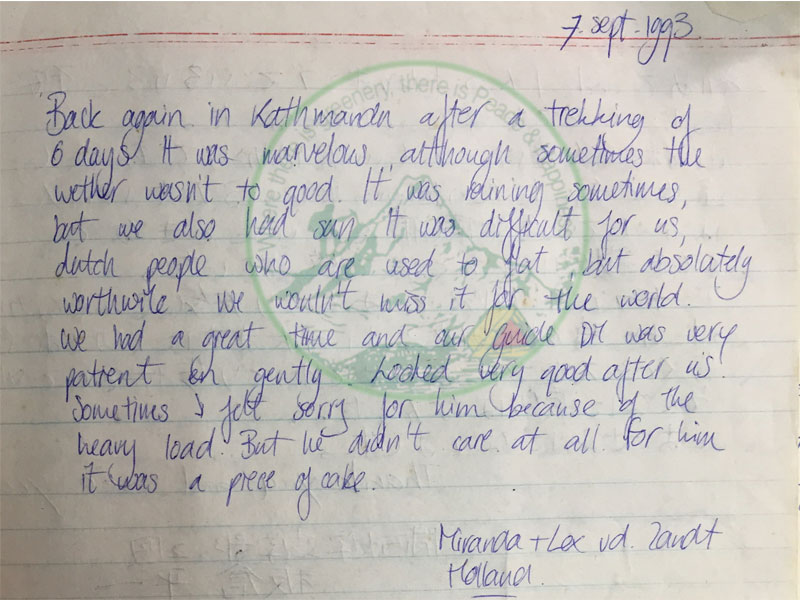 7 sept. 1993
Back again in Kathmandu after a trekking of
6 days. It was marvelous, although sometimes the
wether wasn't to good. It was raining sometimes,
but we also had sun. It was difficult for us,
dutch people who are used to flat, but absolutely
worthwile. We wouln't miss it for the world.
We had a great time and our guide DR was very
patient en gently. Looked very good after us.
Sometimes I felt sorry for him because of the
heavy load. But he didn't care at all. For him
it was a piece of cake.
Miranda + Lex vd. Zandt
Holland.
there is Peace &